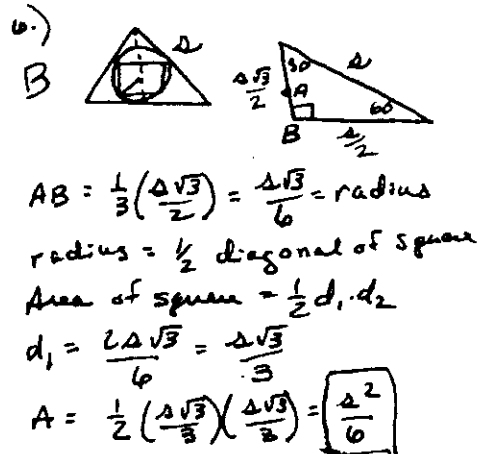 6.)
B
s
s√3/2
30
s
A
60
B
s/2
AB = 1/3 (s√3/2) = s√3/6 = radius
radius = 1/2 diagonal of square
Area of square = 1/2 d₁·d₂
d₁ = 2s√3/6 = s√3/3
A = 1/2 (s√3/3)(s√3/3) = s²/6